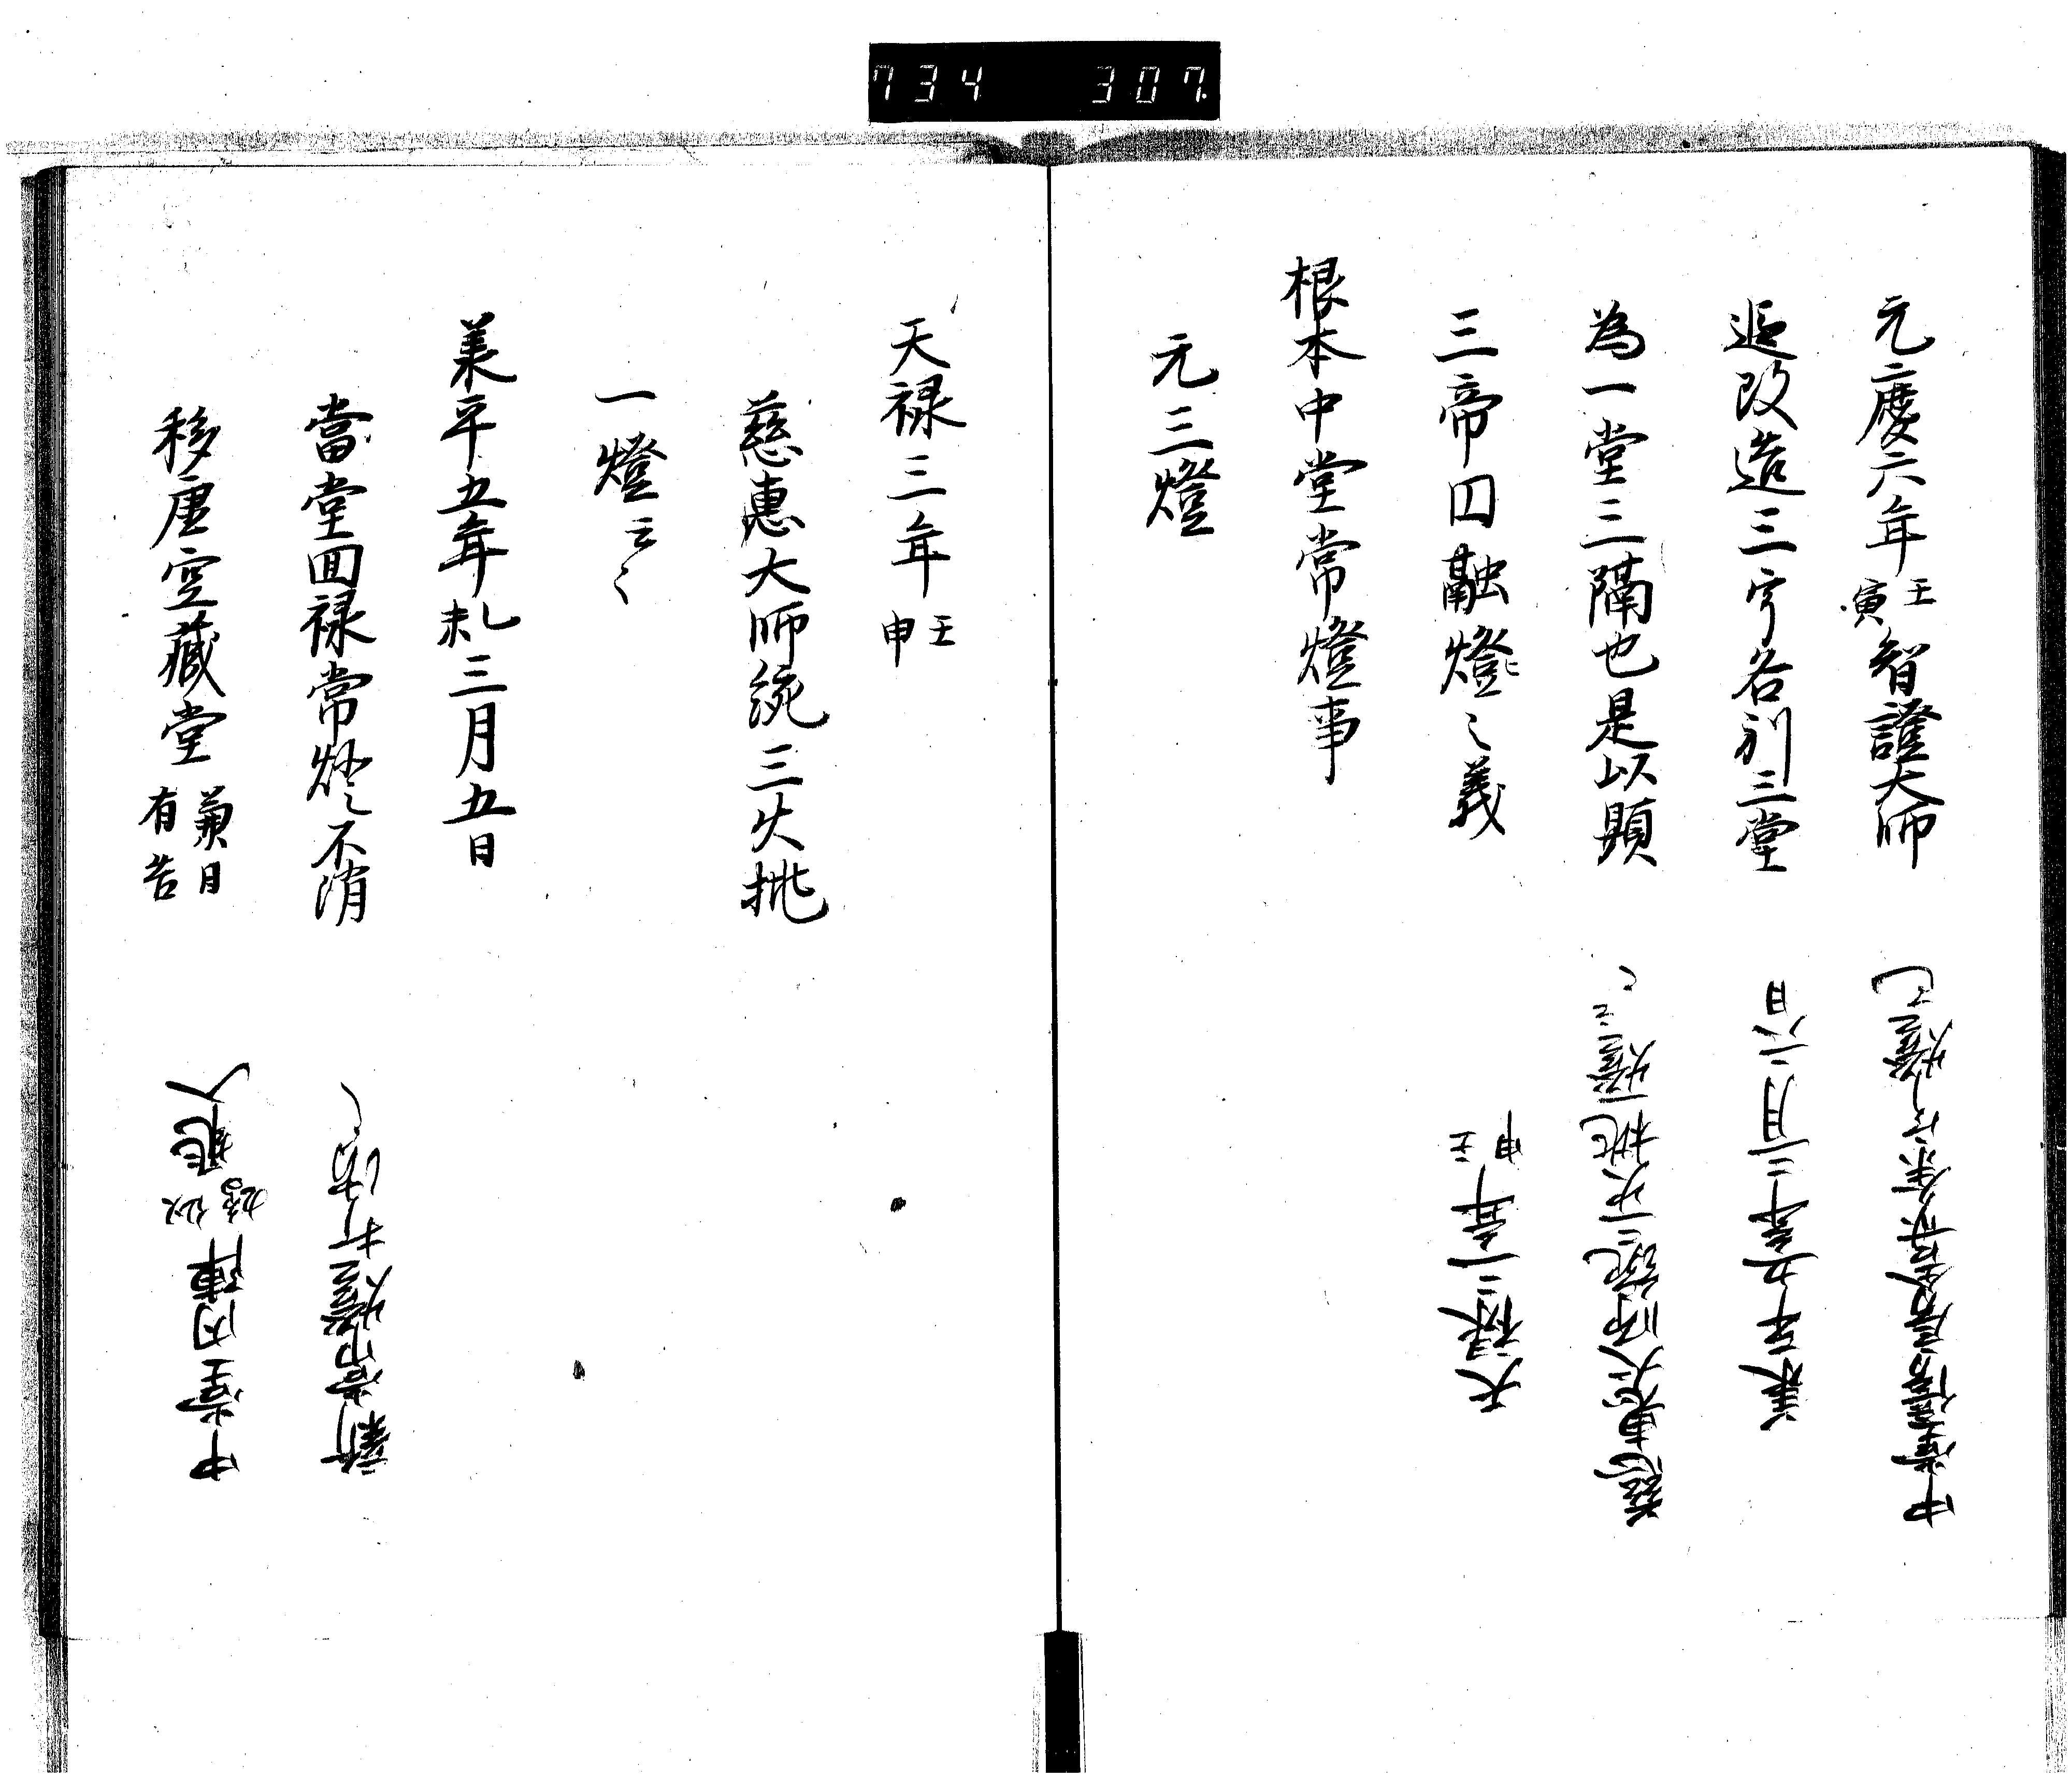 元慶六年壬寅智證大師
追改造三宇各別三堂
為一堂三隔也是以顕
三帝円融燈之義
根本中堂常燈事
元三燈
天禄三年壬申
慈惠大師統三火挑
一燈云々
承平五年乙未三月五日
當堂囬禄常燈不消
移虚空藏堂兼日有告
中堂内陣
新常燈打消
天禄三年壬申
慈惠大師統三火挑一燈云々
承平五年三月六日
中堂
734 307